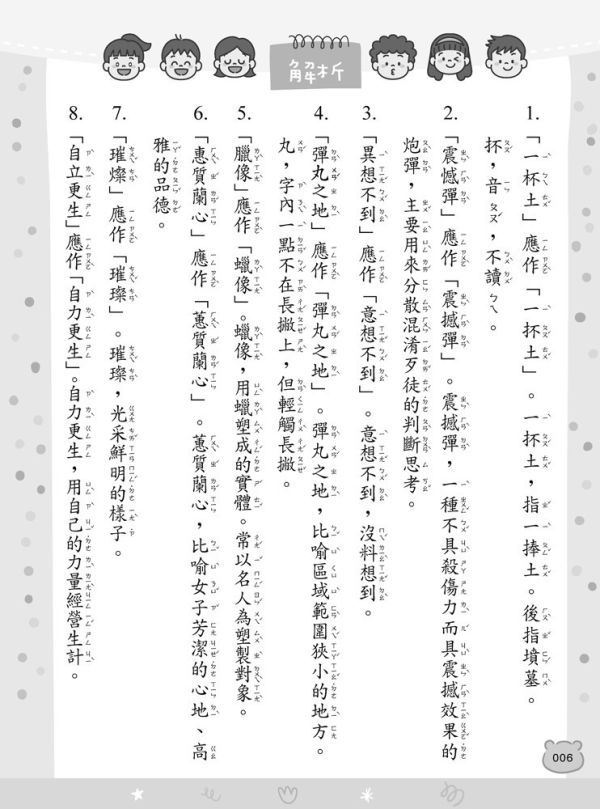 解析
1.「一杯土」應作「一抔土」。一抔土，指一捧土。後指墳墓。
抔，音ㄆㄡˊ，不讀ㄅㄟ。
2.「震憾彈」應作「震撼彈」。震撼彈，一種不具殺傷力而具震撼效果的
炮彈，主要用來分散混淆歹徒的判斷思考。
3.「異想不到」應作「意想不到」。意想不到，沒料想到。
4.「彈丸之地」應作「彈丸之地」。彈丸之地，比喻區域範圍狹小的地方。
丸，字內一點不在長撇上，但輕觸長撇。
5.「臘像」應作「蠟像」。蠟像，用蠟塑成的實體。常以名人為塑製對象。
6.「惠質蘭心」應作「蕙質蘭心」。蕙質蘭心，比喻女子芳潔的心地、高
雅的品德。
7.「璀燦」應作「璀璨」。璀璨，光采鮮明的樣子。
8.「自立更生」應作「自力更生」。自力更生，用自己的力量經營生計。
006